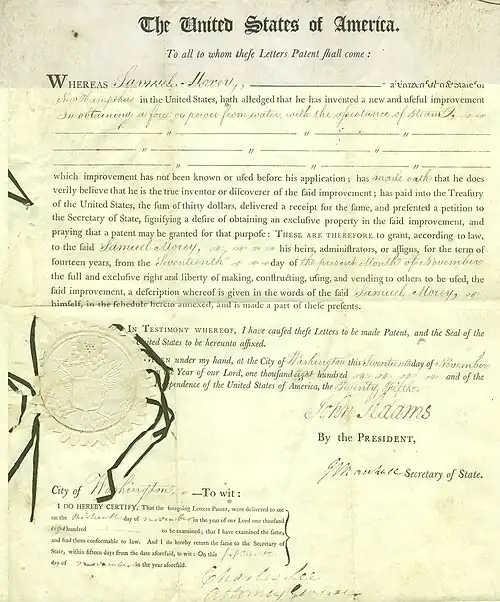 The United States of America.
To all to whom theſe Letters Patent ſhall come:
WHEREAS Samuel Morey, a citizen of the State of
New Hampshire in the United States, hath alledged that he has invented a new and uſeful improvement
in obtaining a force or power from water, with the assistance of steam
which improvement has not been known or uſed before his application; has made oath that he does
verily believe that he is the true inventor or diſcoverer of the ſaid improvement; has paid into the Treaſury
of the United States, the ſum of thirty dollars, delivered a receipt for the ſame, and preſented a petition to
the Secretary of State, ſignifying a deſire of obtaining an excluſive property in the ſaid improvement, and
praying that a patent may be granted for that purpoſe: THESE ARE THEREFORE to grant, according to law,
to the ſaid Samuel Morey, his heirs, adminiſtrators, or aſſigns, for the term of
fourteen years, from the Seventeenth day of the present Month of November
the full and excluſive right and liberty of making, conſtructing, uſing, and vending to others to be uſed, the
ſaid improvement, a deſcription whereof is given in the words of the ſaid Samuel Morey,
himſelf, in the ſchedule hereto annexed, and is made a part of theſe preſents.
IN TESTIMONY WHEREOF, I have cauſed theſe Letters to be made Patent, and the Seal of the
United States to be hereunto affixed.
GIVEN under my hand, at the City of Washington this Seventeenth day of November
in the Year of our Lord, one thouſand eight hundred and of the
Independence of the United States of America, the Twenty Fifth.
John Adams
By the PRESIDENT,
J Marshall Secretary of State.
City of Washington, —To wit:
I DO HEREBY CERTIFY, That the foregoing Letters Patent, were delivered to me
on the thirteenth day of november in the year of our Lord one thouſand
eight hundred to be examined; that I have examined the ſame,
and find them conformable to law. And I do hereby return the ſame to the Secretary of
State, within fifteen days from the date aforeſaid, to wit: On this
day of november in the year aforeſaid.
Charles Lee
Attorney General